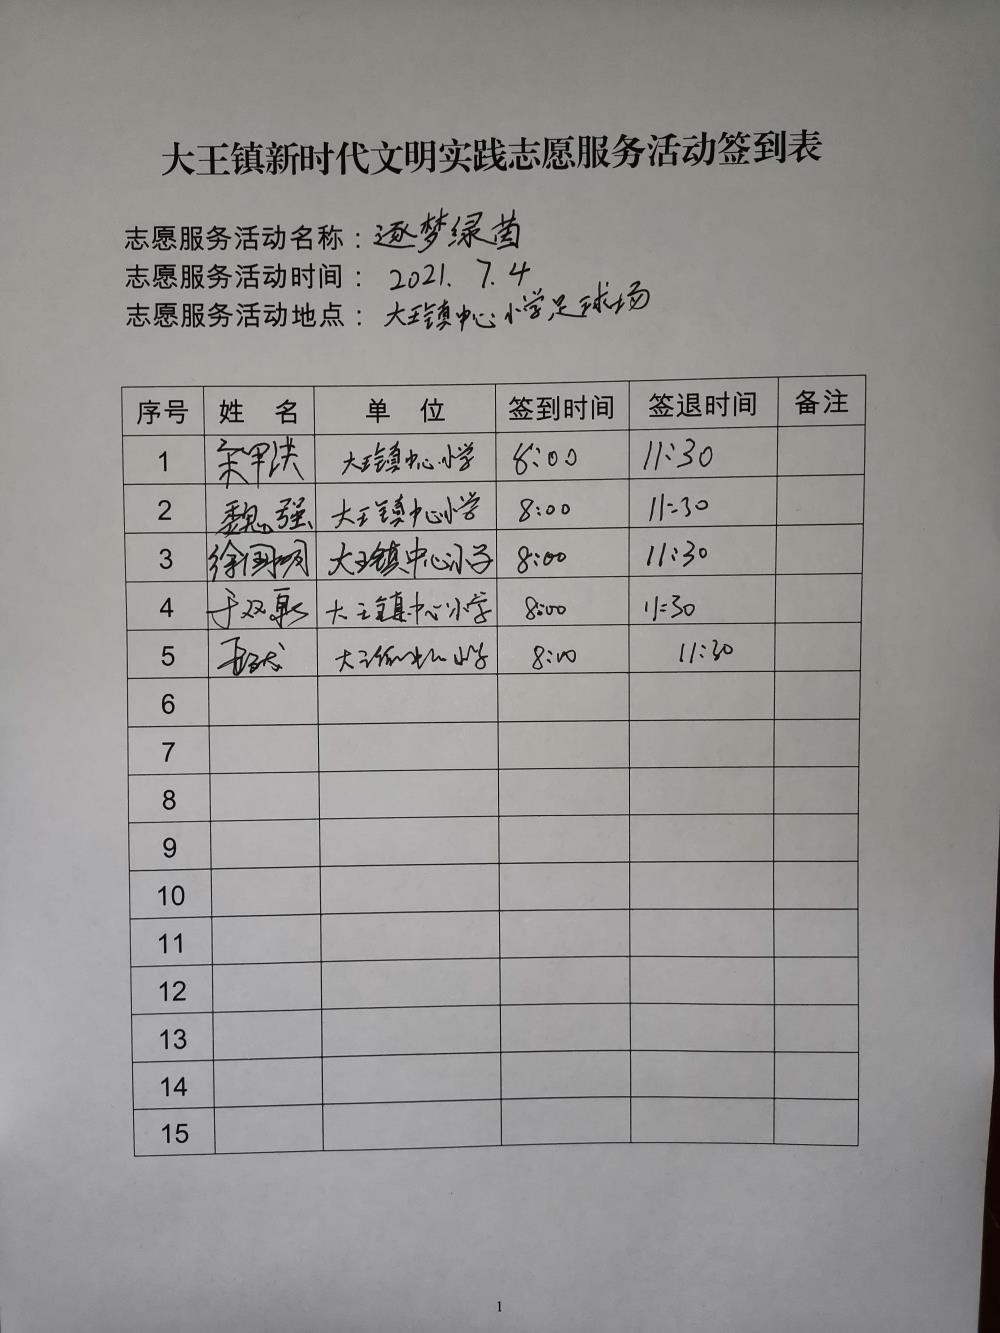 大王镇新时代文明实践志愿服务活动签到表
志愿服务活动名称：逐梦绿茵
志愿服务活动时间： 2021. 7. 4
志愿服务活动地点： 大王镇中心小学足球场
序号 姓 名 单 位 签到时间 签退时间 备注
1 大王镇中心小学 8:00 11:30
2 魏强 大王镇中心小学 8:00 11:30
3 徐国明 大王镇中心小学 8:00 11:30
4 大王镇中心小学 8:00 11:30
5 大王镇中心小学 8:00 11:30
6
7
8
9
10
11
12
13
14
15
1